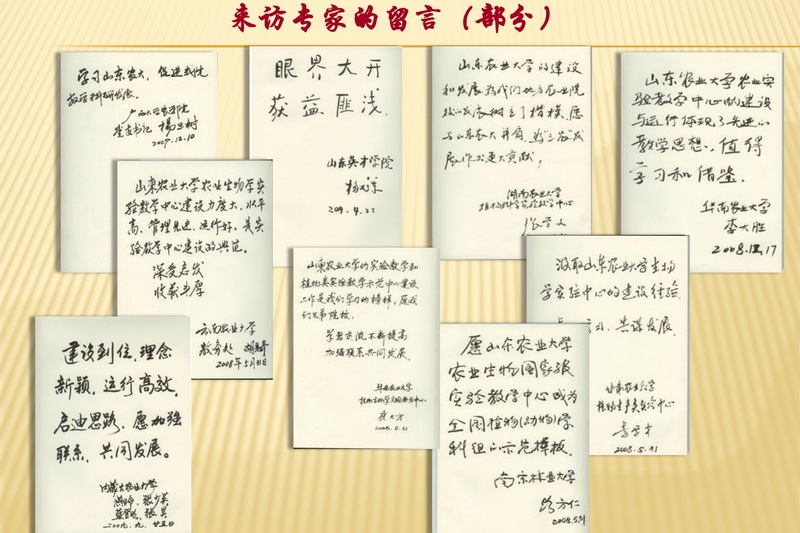 来访专家的留言（部分）
学习山东农大，促进我院
教学科研发展
广西大学农学院
党委书记 杨
2007.12.10
眼界大开
获益匪浅
山东英才学院
2009.4.22
山东农业大学的建设
和发展为我们地方农业院
校的发展树立了楷模，愿
与山东农大并肩，为三农发
展作出更大贡献！
湖南农业大学
山东农业大学农业实
验教学中心的建设
与运行体现了先进的
教学思想，值得
学习和借鉴。
华南农业大学
李大胜
2008.12.17
山东农业大学农业生物学实
验教学中心建设力度大、水平
高、管理先进、运作好，是实
验教学中心建设的典范。
深受启发
收获丰厚
云南农业大学
教务处
2008年5月31日
山东农业大学的实验教学和
植物类实验教学示范中心建设
工作是我们学习的榜样，愿我
们兄弟院校，
希望交流不断提高
加强联系共同发展
华南农业大学
2008.5.31
汲取山东农业大学生物
学实验中心的建设经验
共谋发展
甘肃农业大学
2008.5.31
建设到位，理念
新颖，运行高效，
启迪思路，愿加强
联系，共同发展。
内蒙古农业大学
张少英
张昊
二〇〇九．九．廿五日
愿山东农业大学
农业生物国家级
实验教学中心成为
全国植物(动物)学
科组的示范模板。
南京林业大学
方仁
2008.5.31